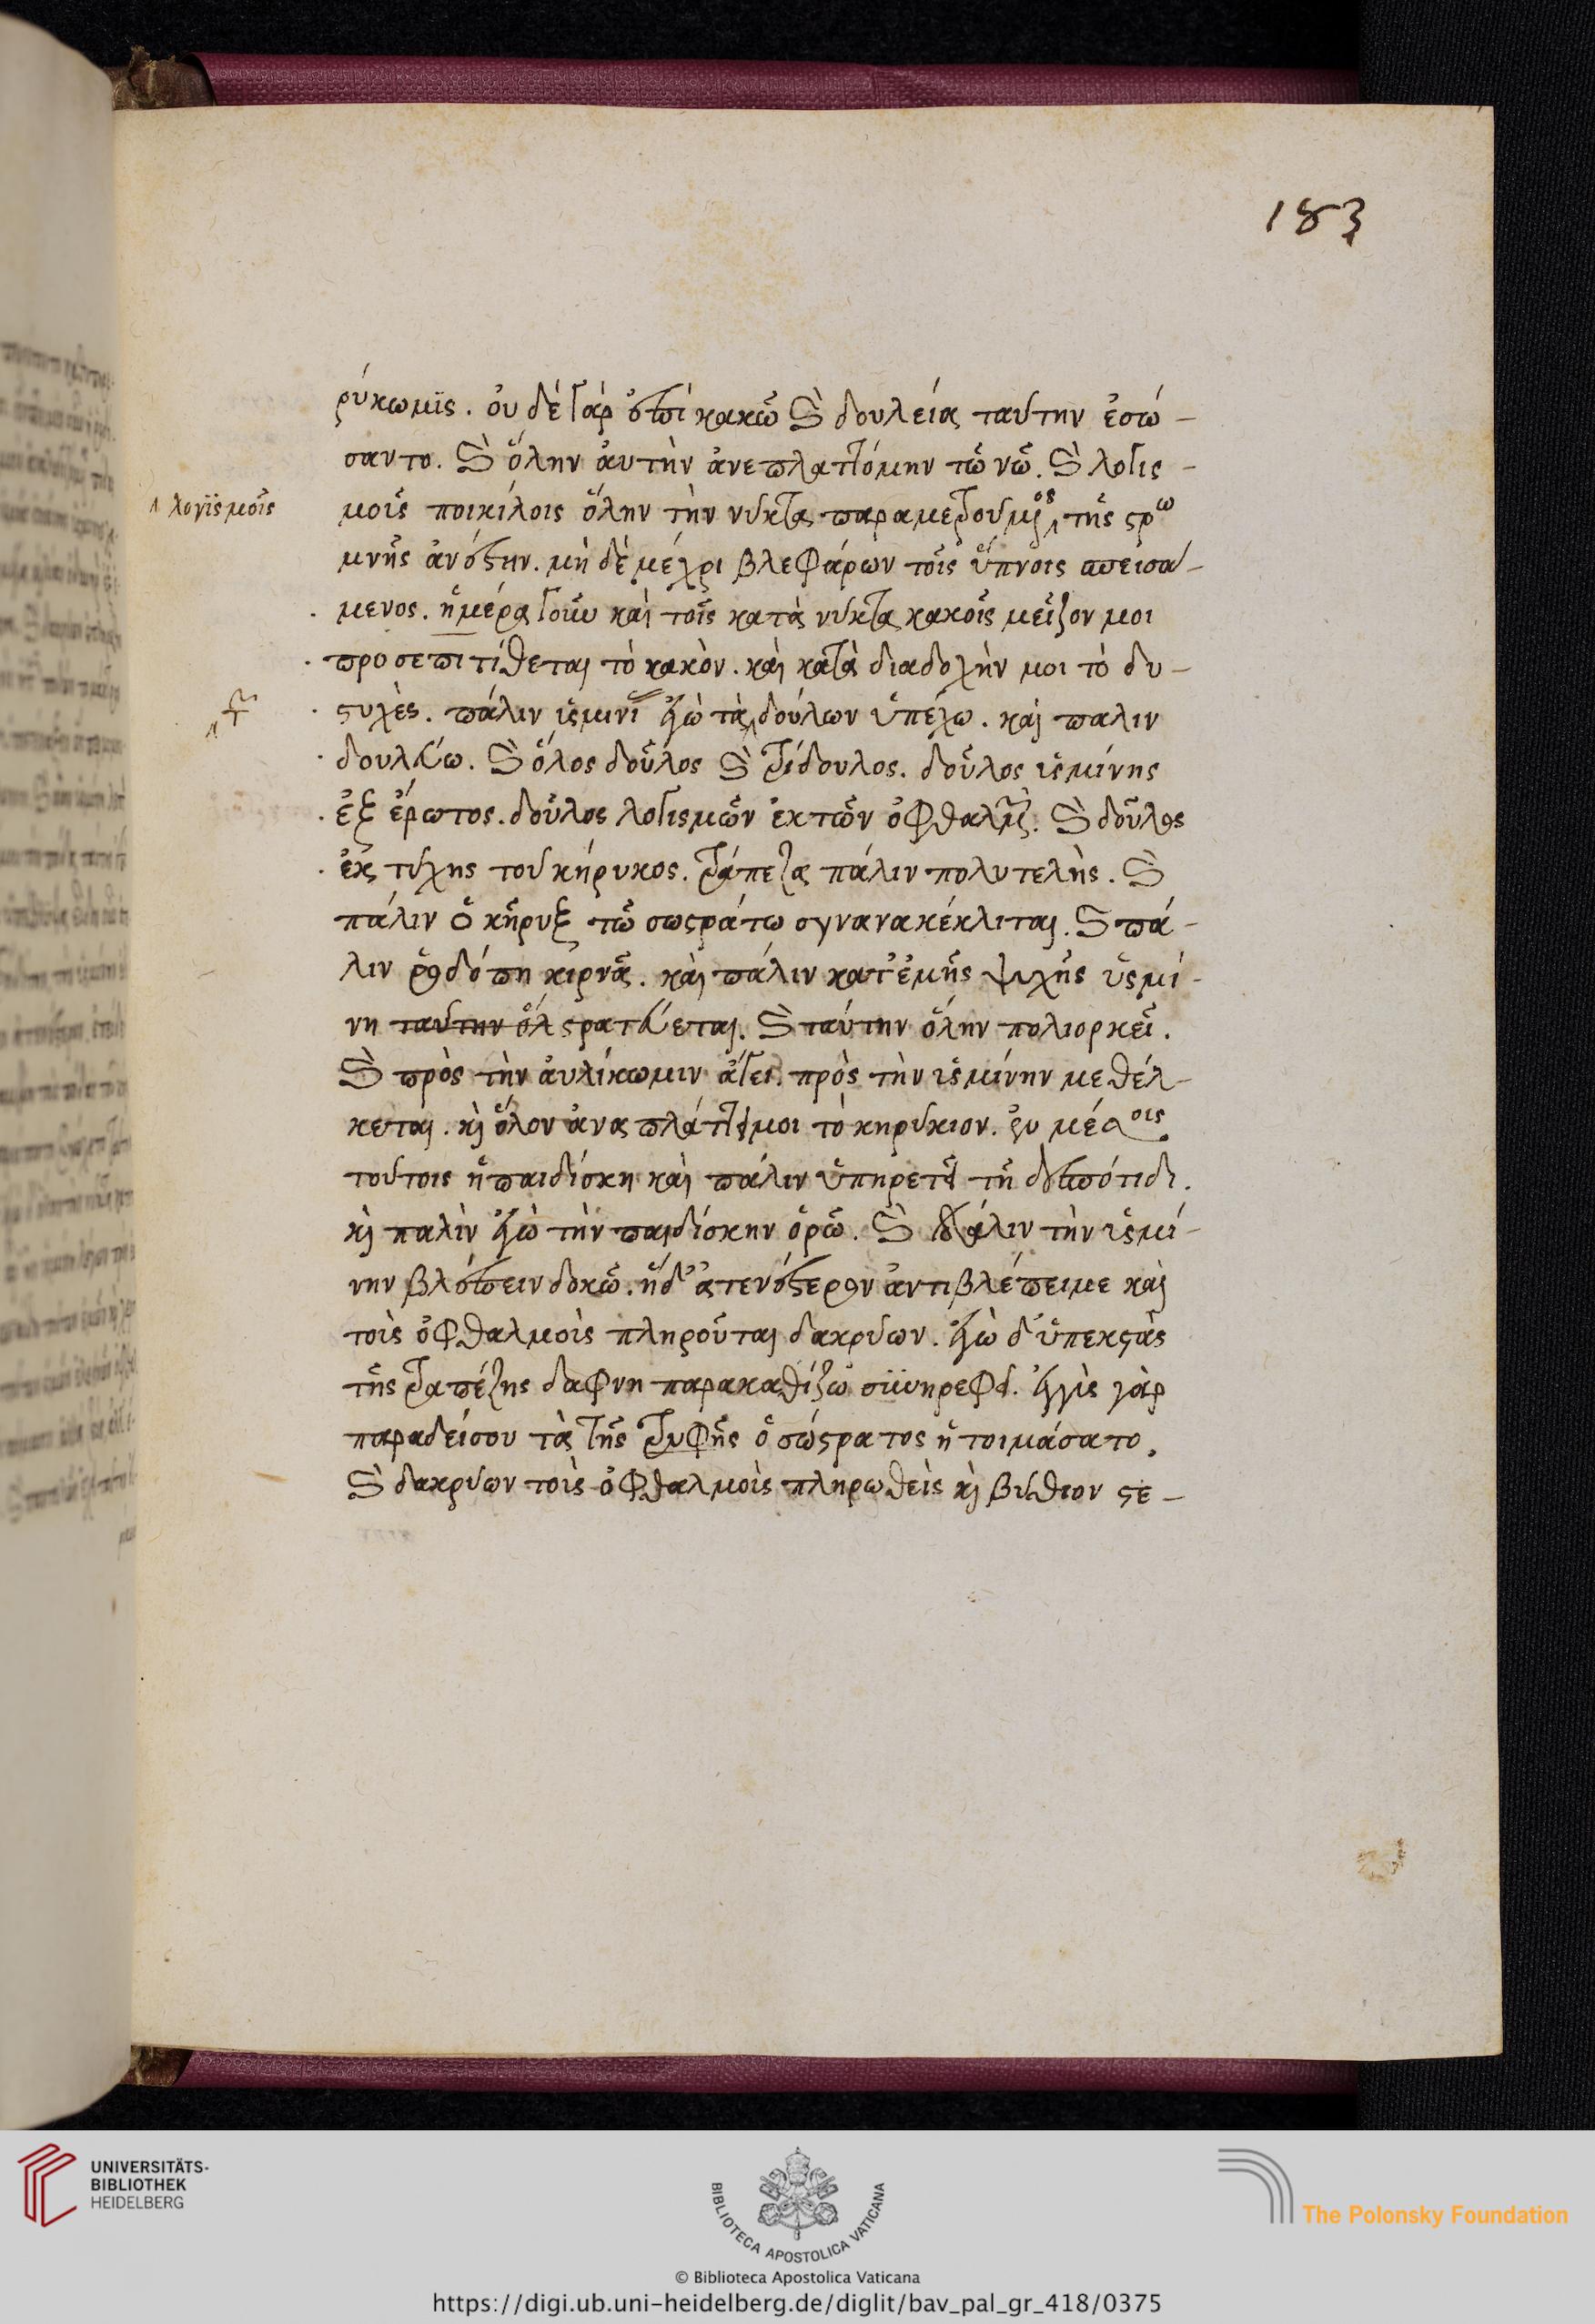 183
ρύκωμϊς. οὐ δὲ γὰρ ἐπὶ κακῶ καὶ δουλεία ταύτην ἐσώ-
σαντο. καὶ ὅλην αὐτὴν ἀνεπλαττόμην τῶ νῶ. καὶ λογις-
μοῖς ποικίλοις ὅλην τὴν νύκτα παραμετρούμενος τῆς στρω
λογϊσμοῖς
μνῆς ἀνέστην. μὴ δὲ μέχρι βλεφάρων τοῖς ὕπνοις σπεισά-
μενος. ἡμέρα γοῦν καὶ τοῖς κατὰ νύκτα κακοῖς μεῖζον μοι
προσεπιτίθεται τὸ κακὸν. καὶ κατὰ διαδοχήν μοι τὸ δυ-
στυχὲς. πάλιν ἐγὼ τὰ δούλων ὑπέχω. καὶ παλιν
δουλεύω. καὶ ὅλος δοῦλος καὶ τρίδουλος. δοῦλος ἰσμίνης
ἐξ ἔρωτος. δοῦλος λογισμῶν ἐκ τῶν ὀφθαλμῶν. καὶ δοῦλος
ἐκ τύχης τοῦ κήρυκος. τράπεζα πάλιν πολυτελὴς. καὶ
πάλιν ὁ κῆρυξ τῶ σωστράτω συνανακέκλιται. καὶ πά-
λιν ῥοδόπη κιρνᾶ. καὶ πάλιν κατ' ἐμῆς ψυχῆς ὑσμί-
νη ταύτην ὅλ στρατεύεται. καὶ ταύτην ὅλην πολιορκεῖ.
καὶ πρὸς τὴν αὐλίκωμιν ἄγει. πρὸς τὴν ἰσμίνην μεθέλ-
κεται. καὶ ὅλον ἀναπλάττει μοι τὸ κηρύκιον. ἐν μέσοις
τούτοις ἡ παιδίσκη καὶ πάλιν ὑπηρετεῖ τῆ δεσπότιδι.
καὶ παλὶν ἐγὼ τὴν παιδίσκην ὁρῶ. καὶ πάλιν τὴν ἰσμί-
νην βλέπειν δοκῶ. ἡ δ' ἀτενέστερον ἀντιβλέπει με καὶ
τοὶς ὀφθαλμοὶς πληροῦται δακρύων. ἐγὼ δ' ὑπεκστὰς
τῆς τραπέζης δαφνη παρακαθίζω συνηρεφεῖ. ἐγγὺς γὰρ
παραδείσου τὰ τῆς τρυφῆς ὁ σώστρατος ἡτοιμάσατο.
καὶ δακρύων τοὶς ὀφθαλμοὶς πληρωθεὶς καὶ βύθιον στε-
UNIVERSITÄTS-
BIBLIOTHEK
HEIDELBERG
BIBLIOTECA APOSTOLICA VATICANA
© Biblioteca Apostolica Vaticana
The Polonsky Foundation
https://digi.ub.uni-heidelberg.de/diglit/bav_pal_gr_418/0375